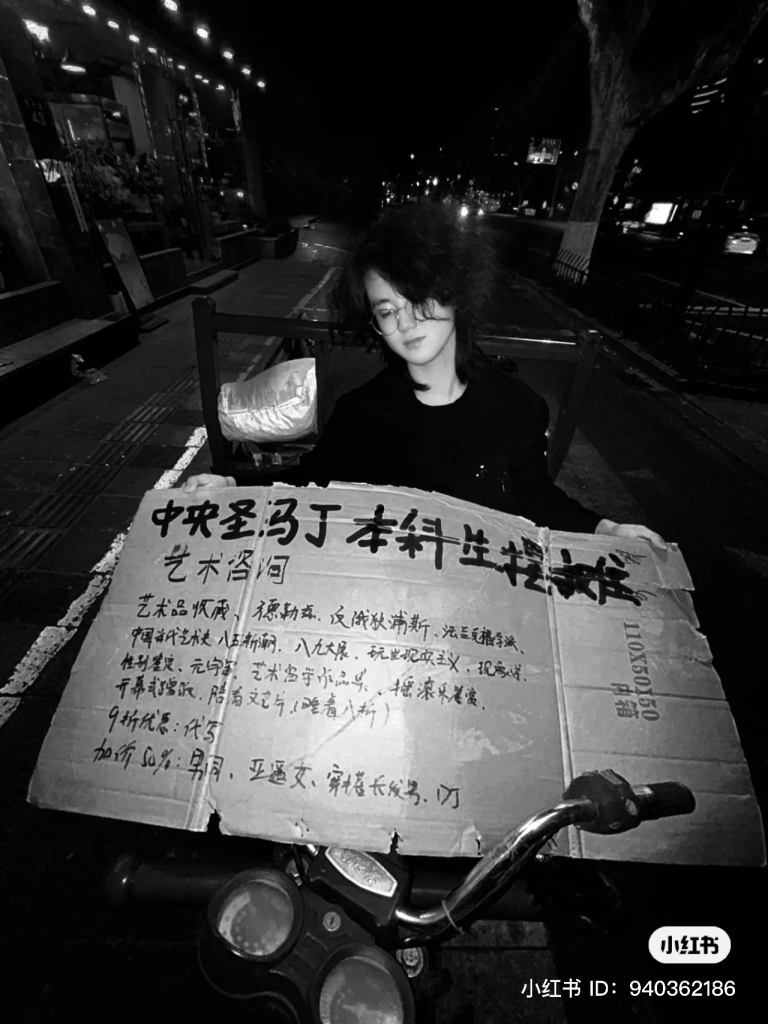 中央圣马丁本科生摆摊
艺术咨询
艺术品收藏、德勒兹、反俄狄浦斯、法兰克福学派、
中国当代艺术史 八五新潮、八九大展、玩世现实主义、现象学、
性别鉴定、元宇宙、艺术留学作品集、摇滚乐鉴赏、
开幕式蹭饭、陪看文艺片(睡着八折)
9折优惠:代写
加价50%:男同、亚逼女、穿搭长发男、
110X50X50
内箱
小红书
小红书 ID:940362186